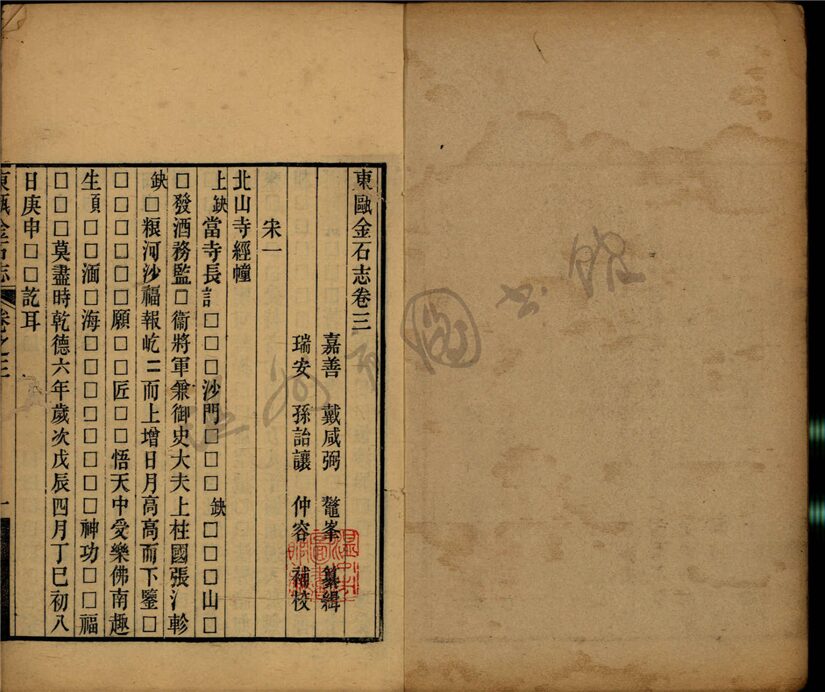 東甌金石志卷三
嘉善 戴咸弼 鼇峯 纂緝
瑞安 孫詒讓 仲容 補校
宋一
北山寺經幢
上缺當寺長訁□□□□沙門□□□缺□□□□山□
□發酒務監□衞將軍兼御史大夫上柱國張氵軫
缺□粮河沙福報屹二而上增日月高高而下鑒□
□□□□□願□□匠□□悟天中受樂佛南趣
生頂□□湎□海□□□□□□□□神功□□福
□□□莫盡時乾德六年歲次戊辰四月丁巳初八
日庚申□□訖耳
東甌金石志 卷之三 一